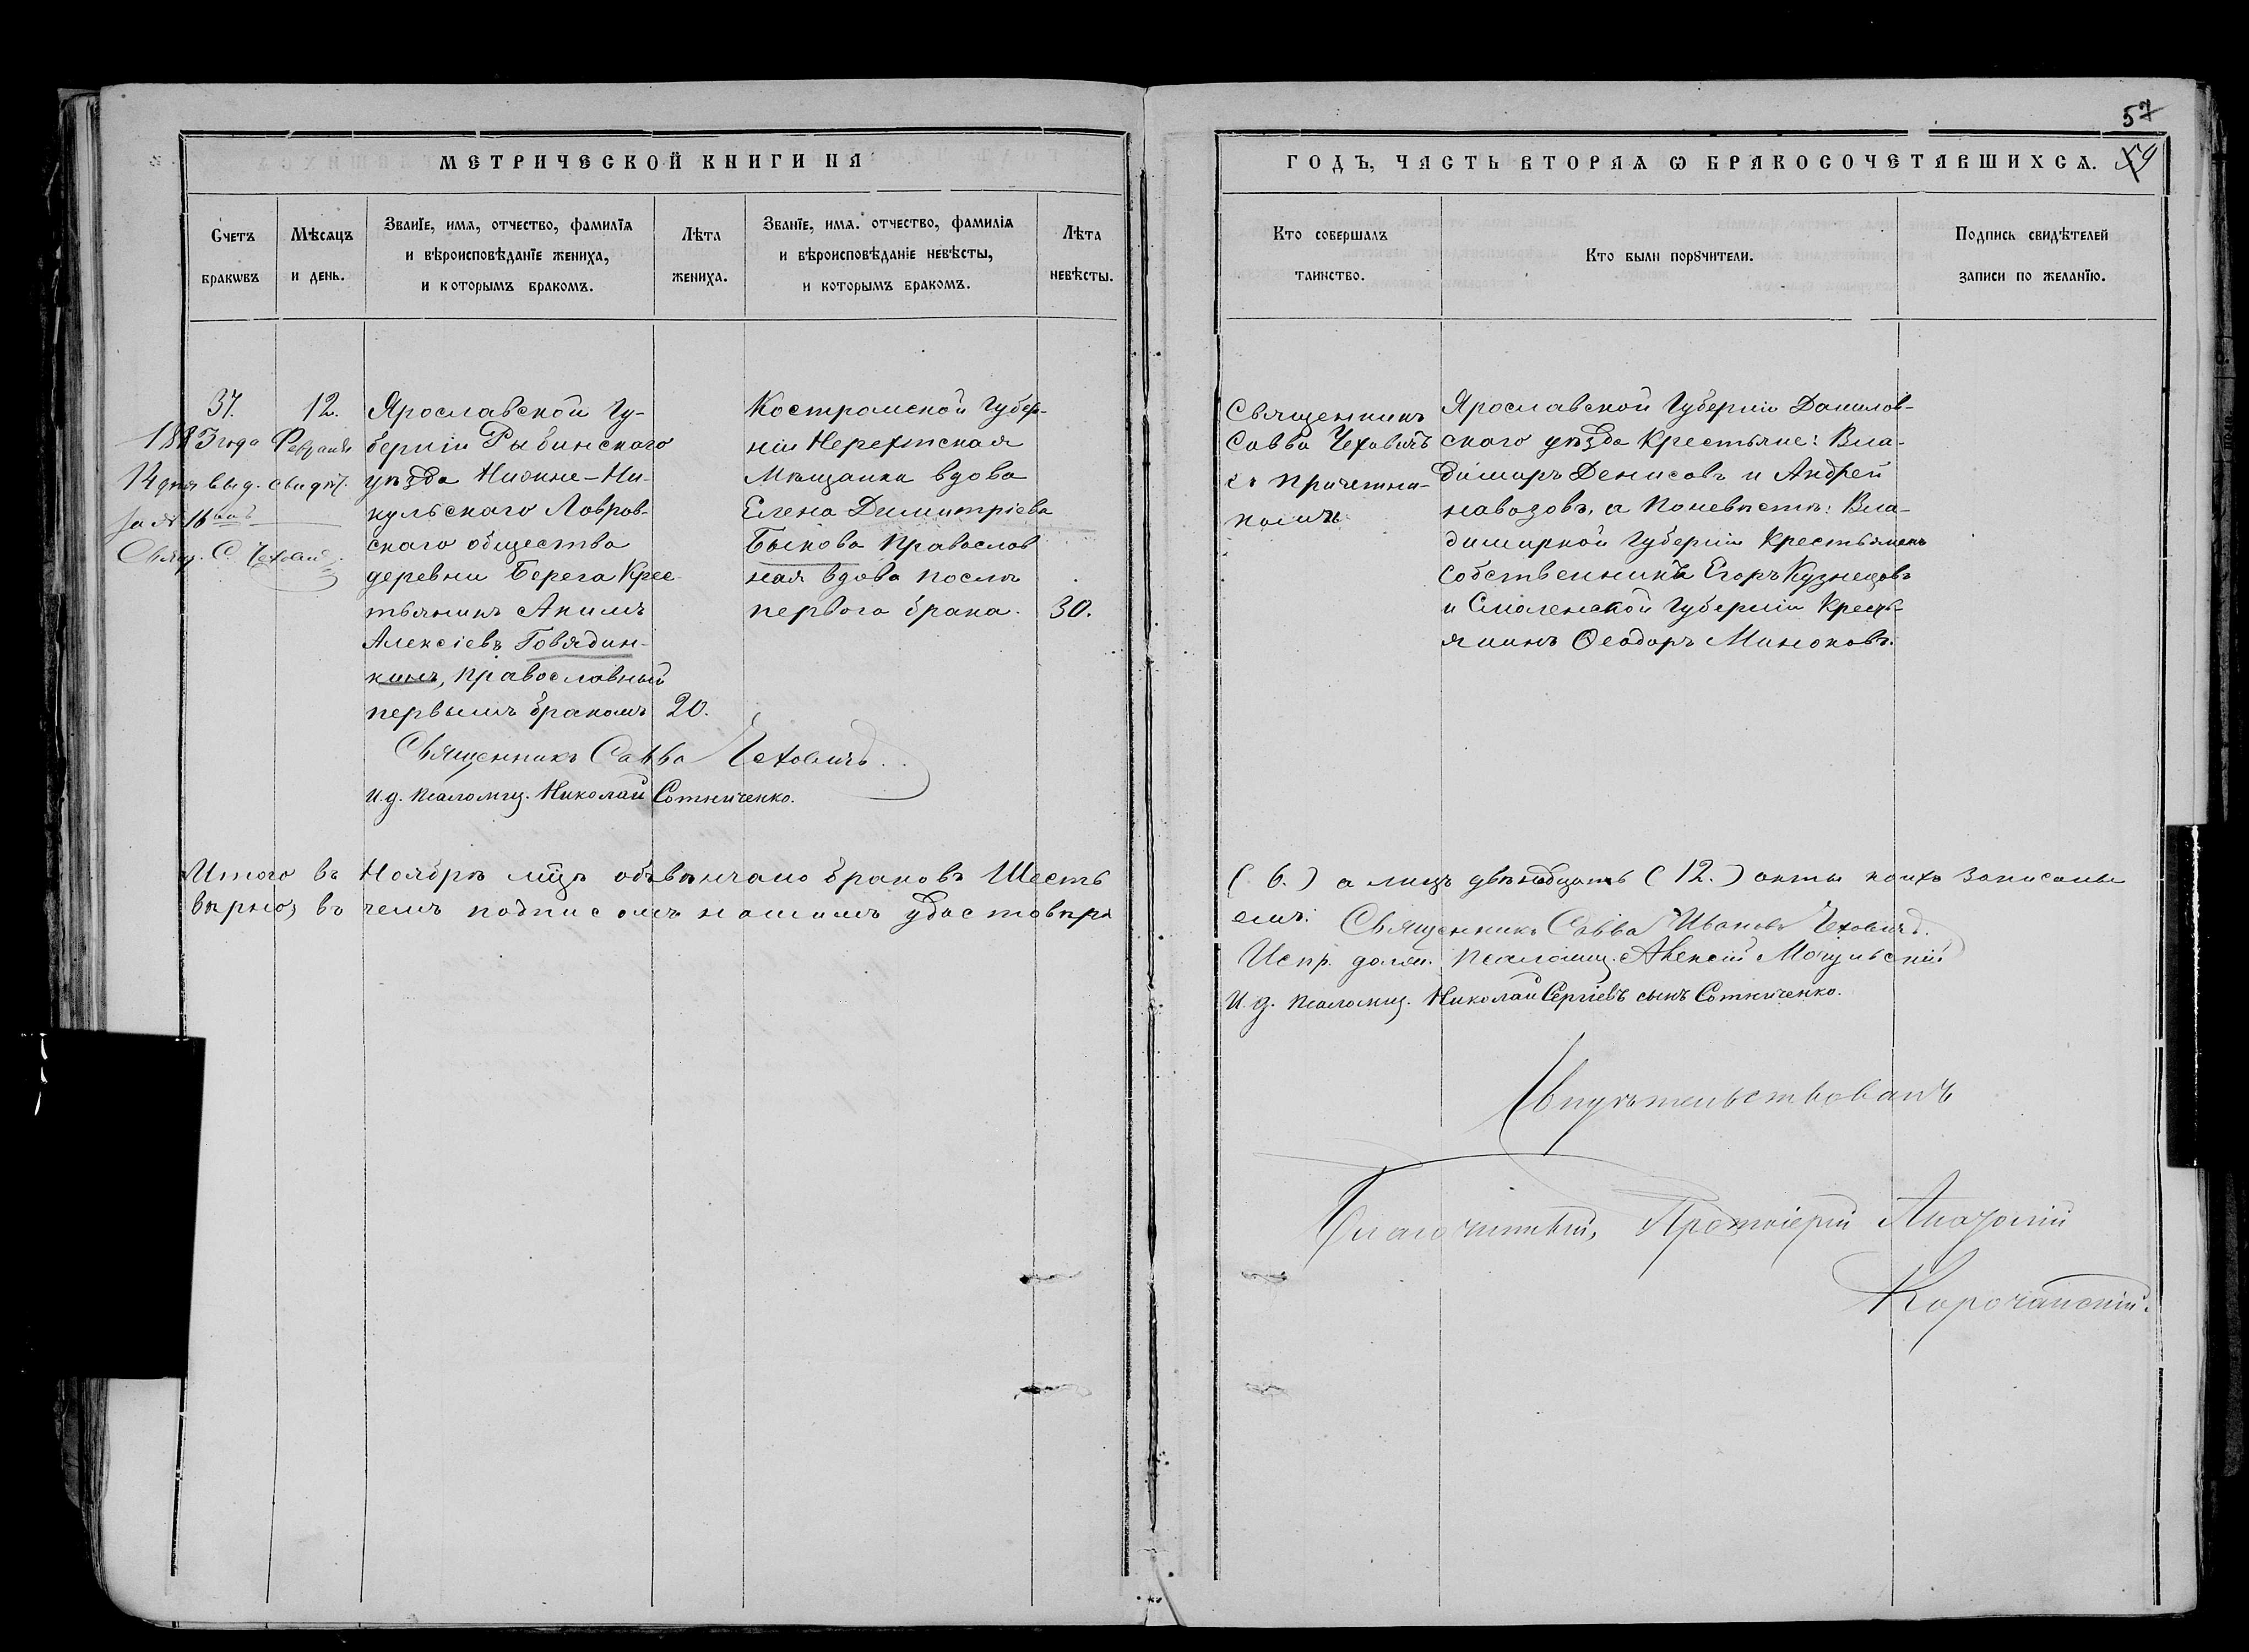 57
59
МЕТРИЧЕСКОЙ КНИГИ НА
ГОДЪ, ЧАСТЬ ВТОРАЯ Ѡ БРАКОСОЧЕТАВШИХСѦ.
Счетъ
бракѡвъ
Мѣсяцъ
и день.
Званіе, имя, отчество, фамилія
и вѣроисповѣданіе жениха,
и которымъ бракомъ.
Лѣта
жениха.
Званіе, имя. отчество, фамилія
и вѣроисповѣданіе невѣсты,
и которымъ бракомъ.
Лѣта
невѣсты.
Кто совершалъ
таинство.
Кто были порꙋчители.
Подпись свидѣтелей
записи по желанію.
37.
1883 года Февраля
14 дня выд. свидѣт.
за № 16
Свящ. С. Чеховичъ
12.
Ярославской Гу-
берніи Рыбинскаго
уѣзда Нижне-Ни-
кульскаго Лавров-
скаго общества
деревни Берега Крес-
тьянинъ Акимъ
Алексіевъ Говядин-
кинъ, православный
первымъ бракомъ
20.
Костромской Губер-
ніи Нерехтская
Мѣщанка вдова
Елена Димитріева
Быкова православ
ная вдова послѣ
первого брака.
30.
Священникъ
Савва Чеховичъ
съ причетни-
комъ
Ярославской Губерніи Данилов-
скаго уѣзда Крестьяне: Вла-
диміръ Денисовъ и Андрей
Навозовъ, а по невѣстѣ: Вла-
димирной Губерніи Крестьянинъ
собственникъ Егоръ Кузнецовъ
и Смоленской Губерніи Кресть-
янинъ Ѳеодоръ Миноковъ.
Священникъ Савва Чеховичъ.
И. д. псаломщ. Николай Сотниченко.
Итого въ Ноябрѣ мцѣ обвѣнчано браковъ Шесть
(6.) а лицъ двѣнадцать (12.) акты коихъ записаны
вѣрно, въ чемъ подписомъ нашимъ удостовѣря
емъ: Священникъ Савва Ивановъ Чеховичъ.
Испр. долж. Псаломщ. Алексій Мочульскій
И. д. псаломщ. Николай Сергіевъ сынъ Сотниченко.
Свидѣтельствовалъ
Благочинный, Протоіерей Анатолій
Корочанскій.